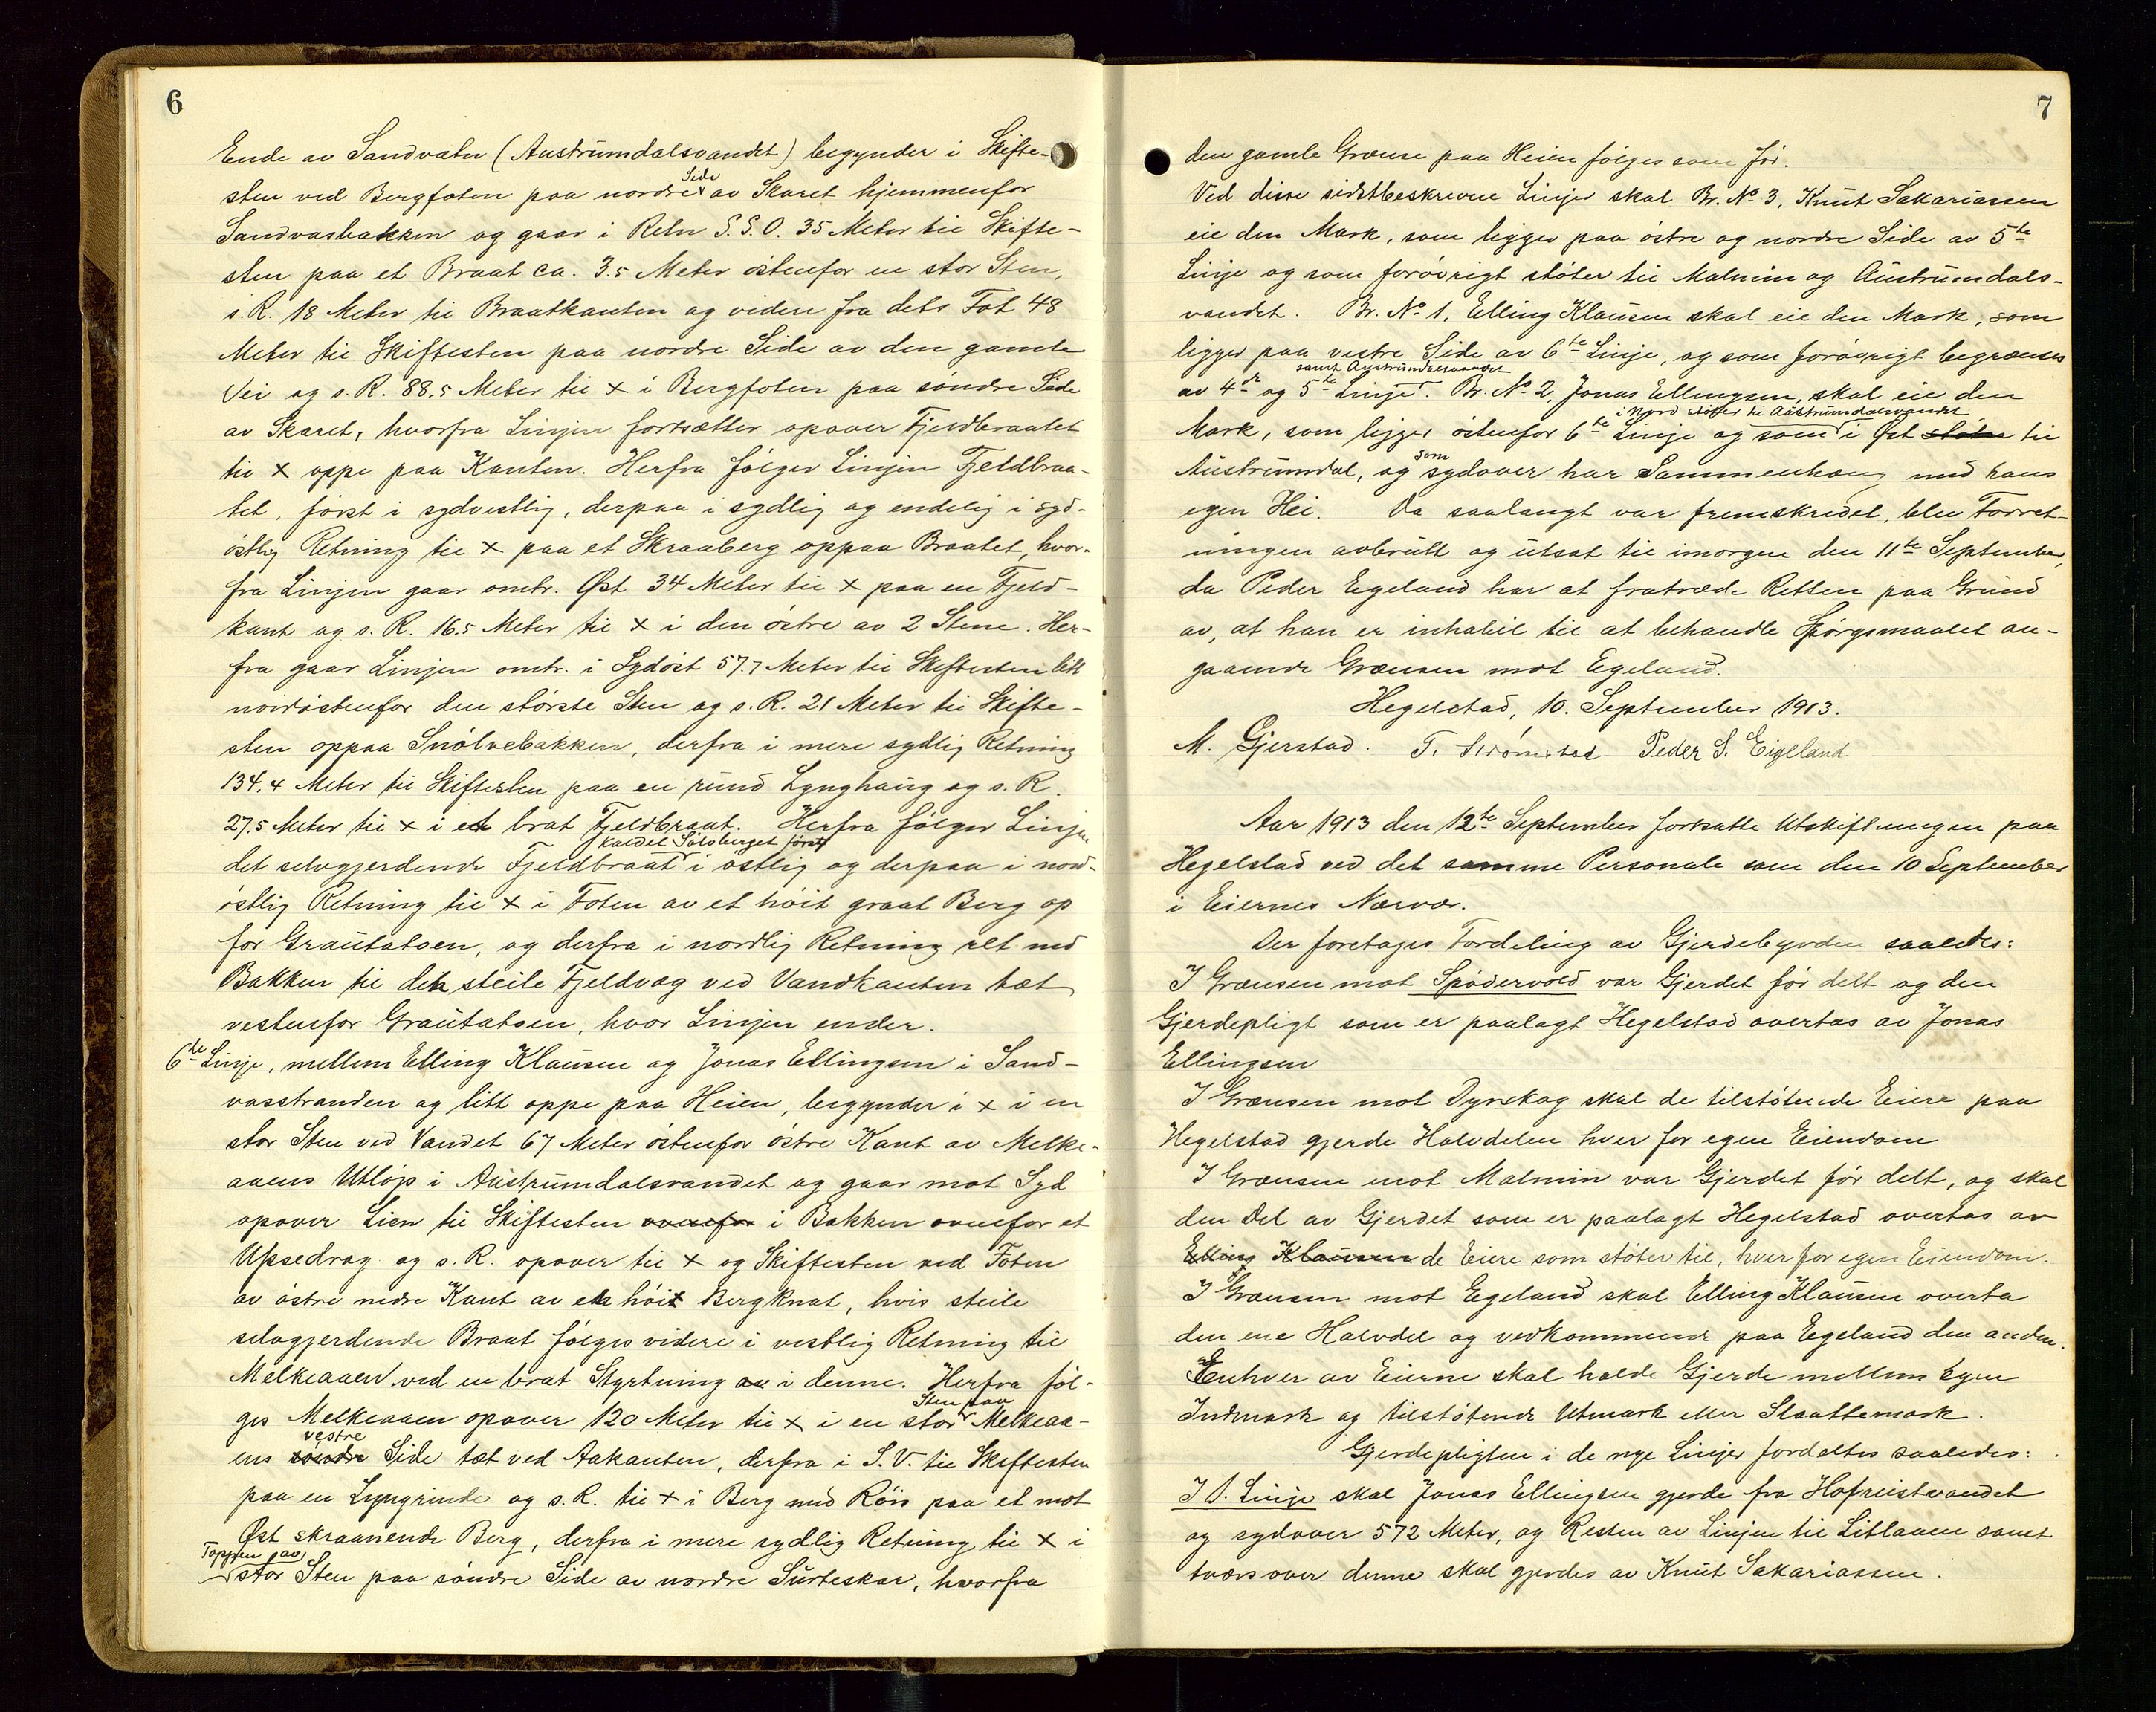 6
Ende av Sandvatn (Austrumdalsvandet) begynder i Skifte-
sten ved Bergfoten paa nordre Side av Skaret hjemmenfor
Sandvasbakken og gaar i Retn S.S.O. 35 Meter til Skifte-
sten paa et Braat ca. 3.5 Meter østenfor en stor Sten,
s. R. 18 Meter til Braatkanten og videre fra dets Fot 48
Meter til Skiftesten paa nordre Side av den gamle
Vei og s. R. 88.5 Meter til x i Bergfoten paa søndre Side
av Skaret, hvorfra Linjen fortsætter opover Fjeldbraatet
til x oppe paa Kanten. Herfra følger Linjen Fjeldbraa-
tet, først i sydvestlig, derpaa i sydlig og endelig i syd-
østlig Retning til x paa et Skraaberg oppaa Braatet, hvor-
fra Linjen gaar omtr. Øst 34 Meter til x paa en Fjeld-
kant og s. R. 16.5 Meter til x i den østre av 2 Stene. Her-
fra gaar Linjen omtr. i Sydøst 57.7 Meter til Skiftesten litt
nordøstenfor den største Sten og s. R. 21 Meter til Skifte-
sten oppaa Snølvebakken, derfra i mere sydlig Retning
134.4 Meter til Skiftesten paa en rund Lynghaug og s. R.
27.5 Meter til x i et brat Fjeldbraat. Herfra følger Linjen
kaldet Sølsberget først
det selvgjerdende Fjeldbraat i østlig og derpaa i nord-
østlig Retning til x i Foten av et høit graat Berg op
for Grautatoen, og derfra i nordlig Retning ret ned
Bakken til den steile Fjeldvæg ved Vandkanten tæt
vestenfor Grautatoen, hvor Linjen ender.
6te Linje, mellem Elling Klausen og Jonas Ellingsen i Sand-
vasstranden og litt oppe paa Heien, begynder i x i en
stor Sten ved Vandet 67 Meter østenfor østre Kant av Melke-
aaens Utløp i Austrumdalsvandet og gaar mot Syd
opover Lien til Skiftesten ovenfor i Bakken ovenfor et
Upsedrag og s. R. opover til x og Skiftesten ved Foten
av østre nedre Kant av en høi Bergknat, hvis steile
selvgjerdende Braat følges videre i vestlig Retning til
Melkeaaen ved en brat Styrtning av i denne. Herfra føl-
Sten paa
ges Melkeaaen opover 120 Meter til x i en stor Melkeaa-
vestre
ens søndre Side tæt ved Aakanten, derfra i S.V. til Skiftesten
paa en Lyngrinde og s. R. til x i Berg med Røis paa et mot
Øst skraanende Berg, derfra i mere sydlig Retning til x i
Toppen av
stor Sten paa søndre Side av nordre Surteskar, hvorfra
7
den gamle Grænse paa Heien følges som før.
Ved disse sidstbeskrevne Linjer skal Br. No 3, Knut Sakariassen
eie den Mark, som ligger paa østre og nordre Side av 5te
Linje og som forøvrigt støter til Malmin og Austrumdals-
vandet. Br. No 1, Elling Klausen skal eie den Mark, som
ligger paa vestre Side av 6te Linje, og som forøvrigt begrænses
samt Austrumdalsvandet
av 4de og 5te Linje. Br. No 2, Jonas Ellingsen, skal eie den
i Nord støter til Austrumdalsvandet
Mark, som ligger østenfor 6te Linje og som i Øst støter til
Austrumdal, og som sydover har Sammenhæng med hans
egen Hei. Da saalangt var fremskredet, blev Forret-
ningen avbrutt og utsat til imorgen den 11te September,
da Peder Egeland har at fratræde Retten paa Grund
av, at han er inhabil til at behandle Spørgsmaalet an-
gaaende Grænsen mot Egeland.
Hegelstad, 10. September 1913.
M. Gjerstad. T. Strømstad Peder S. Eigeland
Aar 1913 den 12te September fortsatte Utskiftningen paa
Hegelstad ved det samme Personale som den 10 September
i Eiernes Nærvær.
Der foretages Fordeling av Gjerdebyrden saaledes:
I Grænsen mot Spødervold var Gjerdet før delt og den
Gjerdepligt som er paalagt Hegelstad overtas av Jonas
Ellingsen
I Grænsen mot Dyrskog skal de tilstøtende Eiere paa
Hegelstad gjerde Halvdelen hver for egen Eiendom
I Grænsen mot Malmin var Gjerdet før delt, og skal
den Del av Gjerdet som er paalagt Hegelstad overtas av
Elling Klausen de Eiere som støter til, hver for egen Eiendom.
I Grænsen mot Egeland skal Elling Klausen overta
den ene Halvdel og vedkommende paa Egeland den anden.
Enhver av Eierne skal holde Gjerde mellem egen
Indmark og tilstøtende Utmark eller Slaattemark.
Gjerdepligten i de nye Linjer fordeltes saaledes:
I 1. Linje skal Jonas Ellingsen gjerde fra Hofreistevandet
og sydover 572 Meter, og Resten av Linjen til Litlaaen samt
tværsover denne skal gjerdes av Knut Sakariassen.